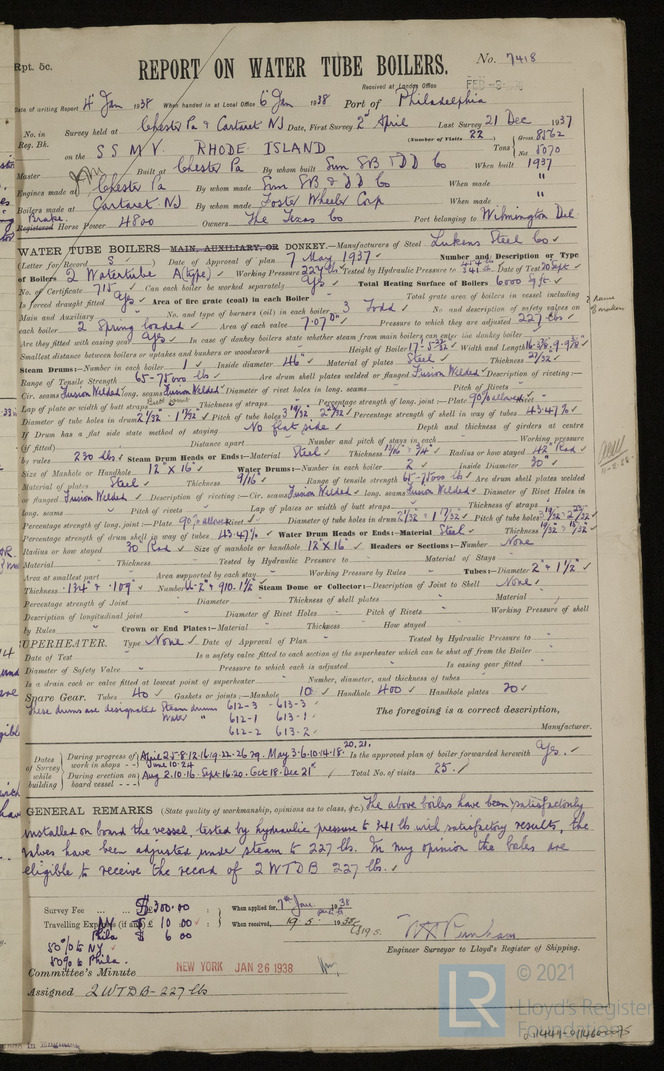 Rpt. 5c.
REPORT ON WATER TUBE BOILERS.
No. 7418
Received at London Office FEB -3 1938
Date of writing Report 4 Jan 1938 When handed in at Local Office 6 Jan 1938 Port of Philadelphia
No. in Survey held at Chester Pa & Cartaret NJ Date, First Survey 2nd April Last Survey 21 Dec 1937
Reg. Bk. (Number of Visits 22)
on the SS MV. RHODE ISLAND Tons Gross 8562 Net 5070
Master Built at Chester Pa By whom built Sun SB & DD Co When built 1937
Engines made at Chester Pa By whom made Sun SB & DD Co When made "
Boilers made at Cartaret NJ By whom made Foster Wheeler Corp When made "
Brake
Registered Horse Power 4800 Owners The Texas Co Port belonging to Wilmington Del
WATER TUBE BOILERS MAIN, AUXILIARY, OR DONKEY.—Manufacturers of Steel Lukens Steel Co
(Letter for Record S) Date of Approval of plan 7 May 1937 Number and Description or Type
of Boilers 2 Watertube A(type) Working Pressure 227 lbs Tested by Hydraulic Pressure to 341 lb Date of Test 20 Sept
No. of Certificate 715 Can each boiler be worked separately Yes Total Heating Surface of Boilers 6000 sq ft
Is forced draught fitted Yes Area of fire grate (coal) in each Boiler Total grate area of boilers in vessel including
Main and Auxiliary No. and type of burners (oil) in each boiler 3 Todd No. and description of safety valves on
each boiler 2 Spring loaded Area of each valve 7.07 Pressure to which they are adjusted 227 lbs
Are they fitted with easing gear Yes In case of donkey boilers state whether steam from main boilers can enter the donkey boiler
Smallest distance between boilers or uptakes and bunkers or woodwork Height of Boiler Width and Length
Steam Drums:—Number in each boiler 1 Inside diameter 46" Material of plates Steel Thickness 21/32
Range of Tensile Strength 65-75000 lb Are drum shell plates welded or flanged Fusion Welded Description of riveting:—
Cir. seams Fusion Welded long. seams Fusion Welded Diameter of rivet holes in long. seams Pitch of Rivets
Lap of plate or width of butt straps Thickness of straps Percentage strength of long. joint:—Plate 90% allowed Rivet
Diameter of tube holes in drum 2 1/32 · 1 17/32 Pitch of tube holes Percentage strength of shell in way of tubes 43.47%
If Drum has a flat side state method of staying No flat side Depth and thickness of girders at centre
(if fitted) Distance apart Number and pitch of stays in each Working pressure
by rules 230 lbs Steam Drum Heads or Ends:—Material Steel Thickness Radius or how stayed 42" Rad
Size of Manhole or Handhole 12" X 16" Water Drums:—Number in each boiler 2 Inside Diameter 30"
Material of plates Steel Thickness 9/16 Range of tensile strength 65-75000 lb Are drum shell plates welded
or flanged Fusion Welded Description of riveting:—Cir. seams Fusion Welded long. seams Fusion Welded Diameter of Rivet Holes in
long. seams Pitch of rivets Lap of plates or width of butt straps Thickness of straps
Percentage strength of long. joint:—Plate 90% allowed Rivet Diameter of tube holes in drum 2 1/32 & 1 17/32 Pitch of tube holes
Percentage strength of drum shell in way of tubes 43.47% Water Drum Heads or Ends:—Material Steel Thickness
Radius or how stayed 30 Rad Size of manhole or handhole 12" X 16" Headers or Sections:—Number None
Material Thickness Tested by Hydraulic Pressure to Material of Stays
Area at smallest part Area supported by each stay Working Pressure by Rules Tubes:—Diameter 2" & 1 1/2"
Thickness .134" & .109" Number Steam Dome or Collector:—Description of Joint to Shell None
Percentage strength of Joint Diameter Thickness of shell plates Material
Description of longitudinal joint Diameter of Rivet Holes Pitch of Rivets Working Pressure of shell
by Rules Crown or End Plates:—Material Thickness How stayed
SUPERHEATER. Type None Date of Approval of Plan Tested by Hydraulic Pressure to
Date of Test Is a safety valve fitted to each section of the superheater which can be shut off from the Boiler
Diameter of Safety Valve Pressure to which each is adjusted Is easing gear fitted
Is a drain cock or valve fitted at lowest point of superheater Number, diameter, and thickness of tubes
Spare Gear. Tubes 40 Gaskets or joints:—Manhole 10 Handhole 400 Handhole plates 20
These drums are designated Steam drums 612-3 613-3
Water " 612-1 613-1
612-2 613-2
The foregoing is a correct description,
Manufacturer.
Dates of Survey while building
During progress of work in shops April 2.5.8.12.16.19.22.26.29. May 3.6.10.14.18.20.21. June 10.24 Is the approved plan of boiler forwarded herewith Yes.
During erection on board vessel Aug 2.10.16. Sept 16.20. Oct 18. Dec 21st Total No. of visits 25.
GENERAL REMARKS (State quality of workmanship, opinions as to class, &c.) The above boilers have been satisfactorily
installed on board the vessel, tested by hydraulic pressure to 341 lb with satisfactory results, the
valves have been adjusted under steam to 227 lb. In my opinion the boilers are
eligible to receive the record of 2 WTDB 227 lbs.
Survey Fee $ 300.00 When applied for, 7th Jan 1938
Travelling Expenses (if any) $ 10 00 When received, 19.5.1938
Phila $ 6 00
50% to NY
50% to Phila.
Engineer Surveyor to Lloyd's Register of Shipping.
Committee's Minute NEW YORK JAN 26 1938
Assigned 2 WTDB - 227 lbs
LR © 2021
Lloyd's Register
Foundation